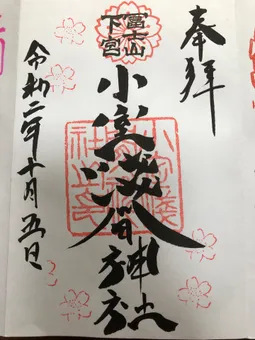 奉拝
冨士山
下宮
小室浅間神社
令和二年十月五日